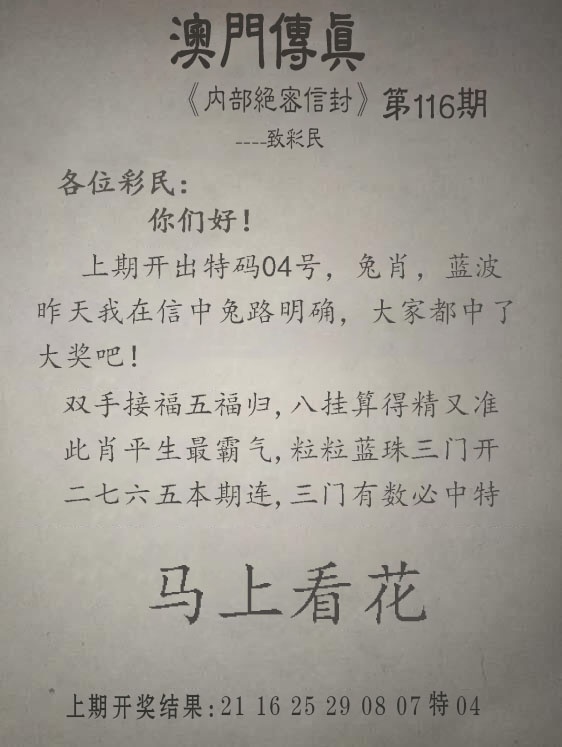 澳門傳真
《内部絕密信封》第116期
----致彩民
各位彩民：
你们好！
上期开出特码04号，兔肖，蓝波
昨天我在信中兔路明确，大家都中了
大奖吧！
双手接福五福归,八挂算得精又准
此肖平生最霸气,粒粒蓝珠三门开
二七六五本期连,三门有数必中特
马上看花
上期开奖结果:21 16 25 29 08 07特04